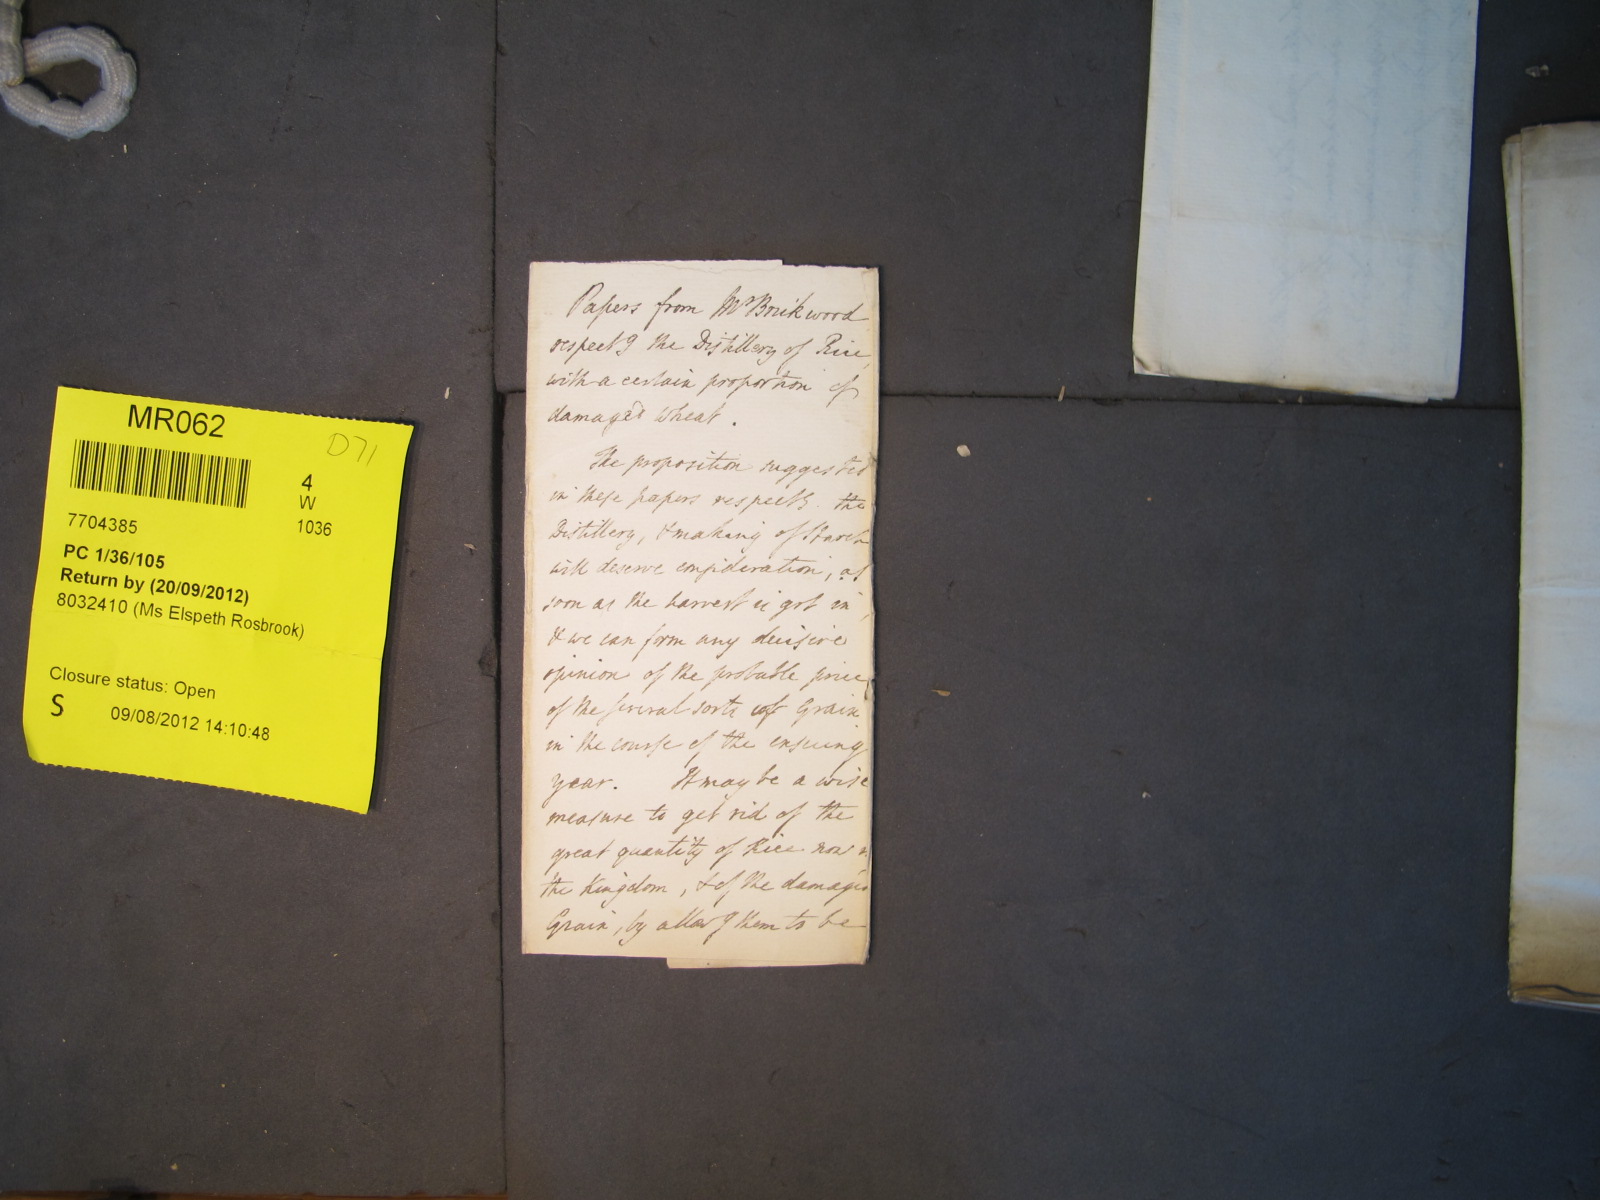 MR062
D71
4
W
1036
7704385
PC 1/36/105
Return by (20/09/2012)
8032410 (Ms Elspeth Rosbrook)
Closure status: Open
S
09/08/2012 14:10:48
Papers from Mr Brickwood
respectg the Distillery of Rice,
with a certain proportion of
damaged Wheat.
The proposition suggested
in these papers respectg the
Distillery, & making of Starch
will deserve consideration, as
soon as the harvest is got in,
& we can form any decisive
opinion of the probable price
of the several sorts of Grain
in the course of the ensuing
year. It may be a wise
measure to get rid of the
great quantity of Rice now in
the Kingdom, & of the damaged
Grain, by allowg them to be